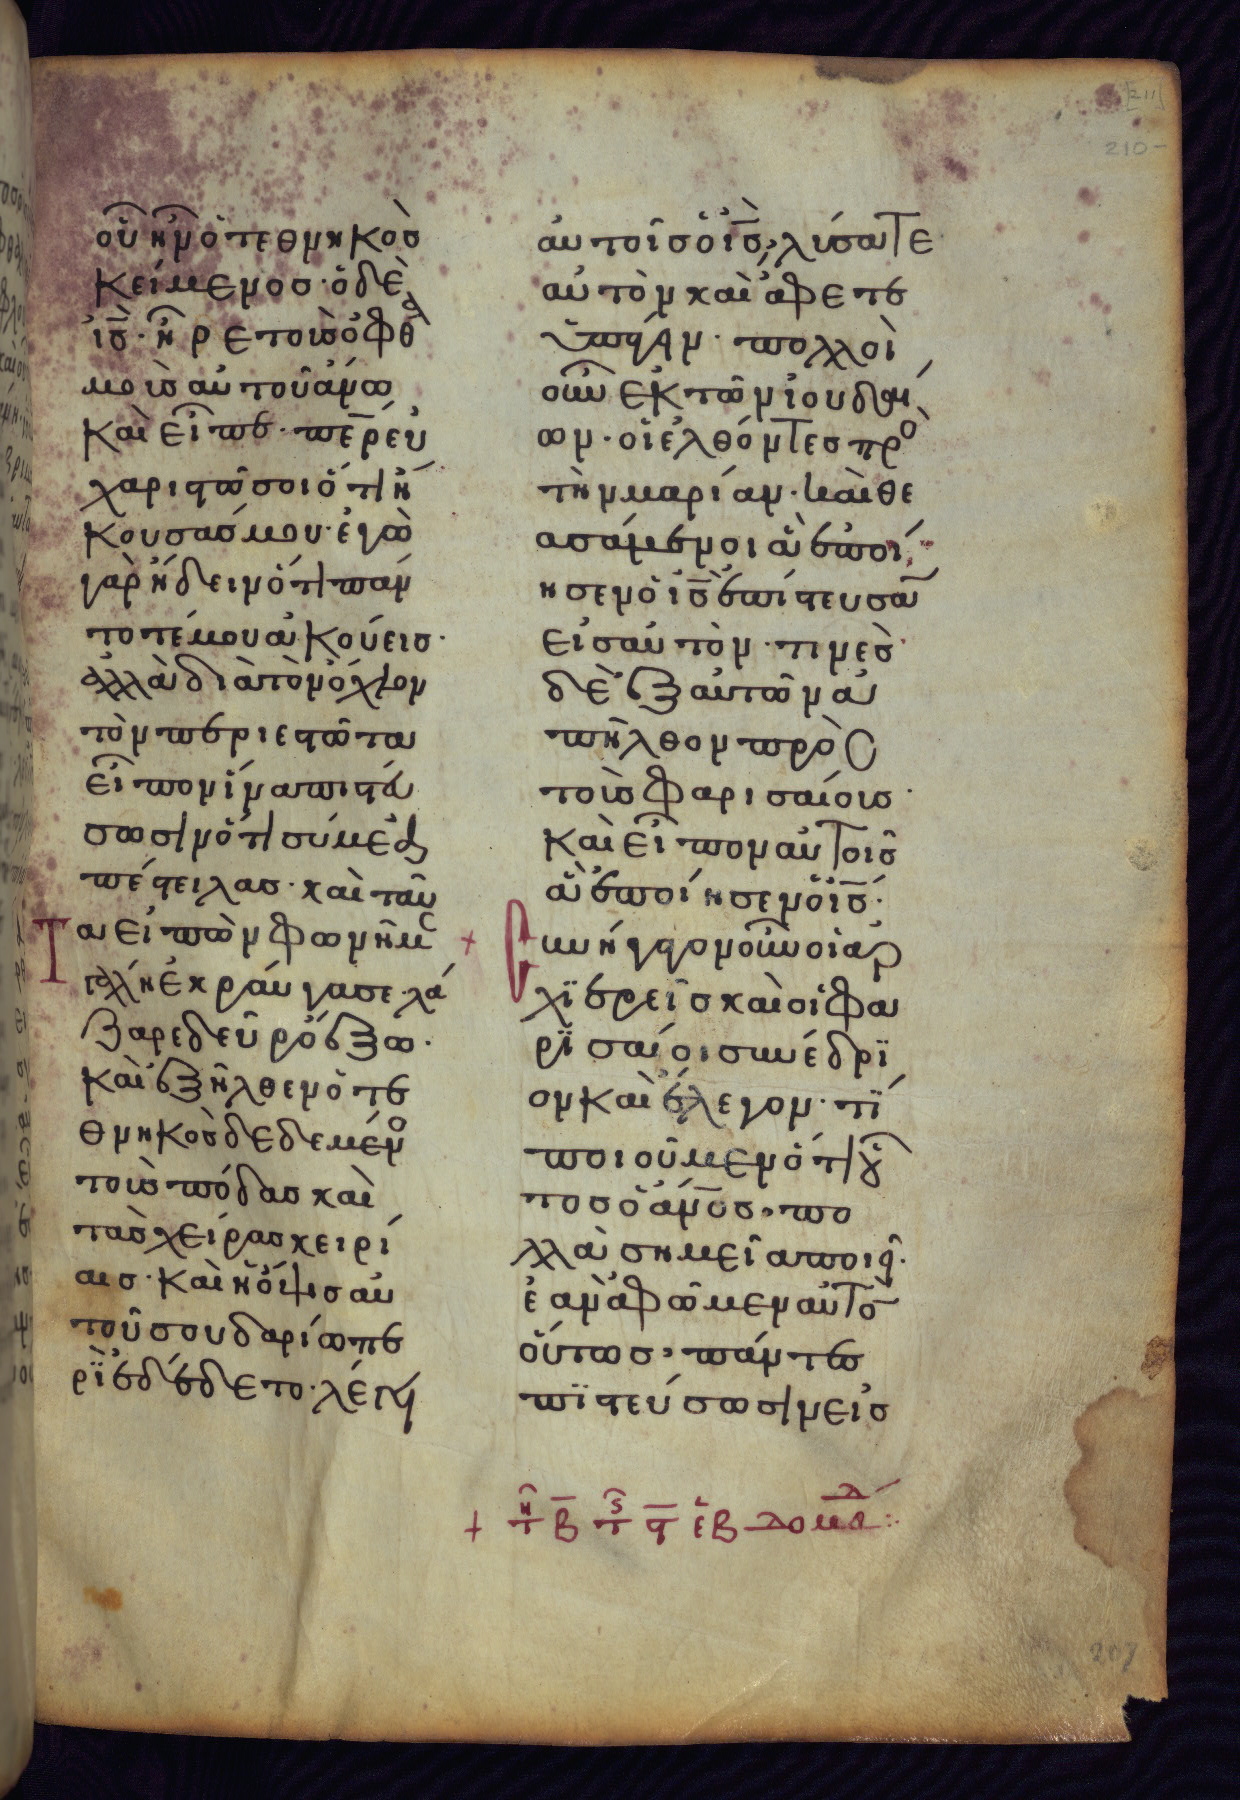 [211]
210-
οὗ ἦν ὁ τεθνηκὼσ
κείμενοσ· ὁ δὲ
ἰσ̅· ἦρε τοὺσ ὀφθαλ
μοὺσ αὐτοῦ ἄνω
καὶ εἶπε· πε̅ρ εὐ
χαριστῶ σοι ὅτι ἤ
κουσάσ μου· ἐγὼ
γὰρ ἤδειν ὅτι πάν
τοτέ μου ἀκούεισ·
ἀλλὰ διὰ τὸν ὄχλον
τὸν περιεστῶτα
εἶπον ἵνα πιστεύ
σωσιν ὅτι σύ με ἀ
πέστειλασ· καὶ ταῦ
τα εἰπὼν φωνῆ με
γάλη ἐκράυγασε· λά
ζαρε δεῦρο ἔξω·
καὶ ἐξῆλθεν ὁ τε
θνηκὼσ δεδεμένο
τοὺσ πόδασ καὶ
τὰσ χεῖρασ κειρί
αισ· καὶ ἡ ὄψισ αὐ
τοῦ σουδαρίω πε
ρϊεδέδετο· λέγει
αὐτοῖσ ὁ ἰσ̅, λύσατε
αὐτὸν καὶ ἄφετε
ὑπάγειν· πολλοὶ
οὖν ἐκ τῶν ἰουδαί
ων· οἱ ἐλθόντεσ προ
τὴν μαρίαν· καὶ θε
ασάμενοι ἃ ἐποί
ησεν ὁ ἰσ̅ ἐπίστευσα
εἰσ αὐτὸν· τινὲσ
δὲ ἐξ αὐτῶν ἀ
πῆλθον πρὸσ
τοὺσ φαρισαίουσ·
καὶ εἶπον αὐτοῖσ
ἃ ἐποίησεν ὁ ἰσ̅·
+ Συνήγαγον οὖν οἱ ἀρ
χϊερεῖσ καὶ οἱ φα
ρϊσαίοι συνέδρϊ
ον καὶ ἔλεγον· τί
ποιοῦμεν ὅτι οὗ
τοσ ὁ ἀν̅οσ· πο
λλὰ σημεῖα ποιεῖ·
ἐὰν ἀφῶμεν αὐτο
οὕτωσ, πάντεσ
πϊστεύσωσιν εἰσ
+ τη β̅ τ̅ς ϛ̅ ἑβδομαδ
207